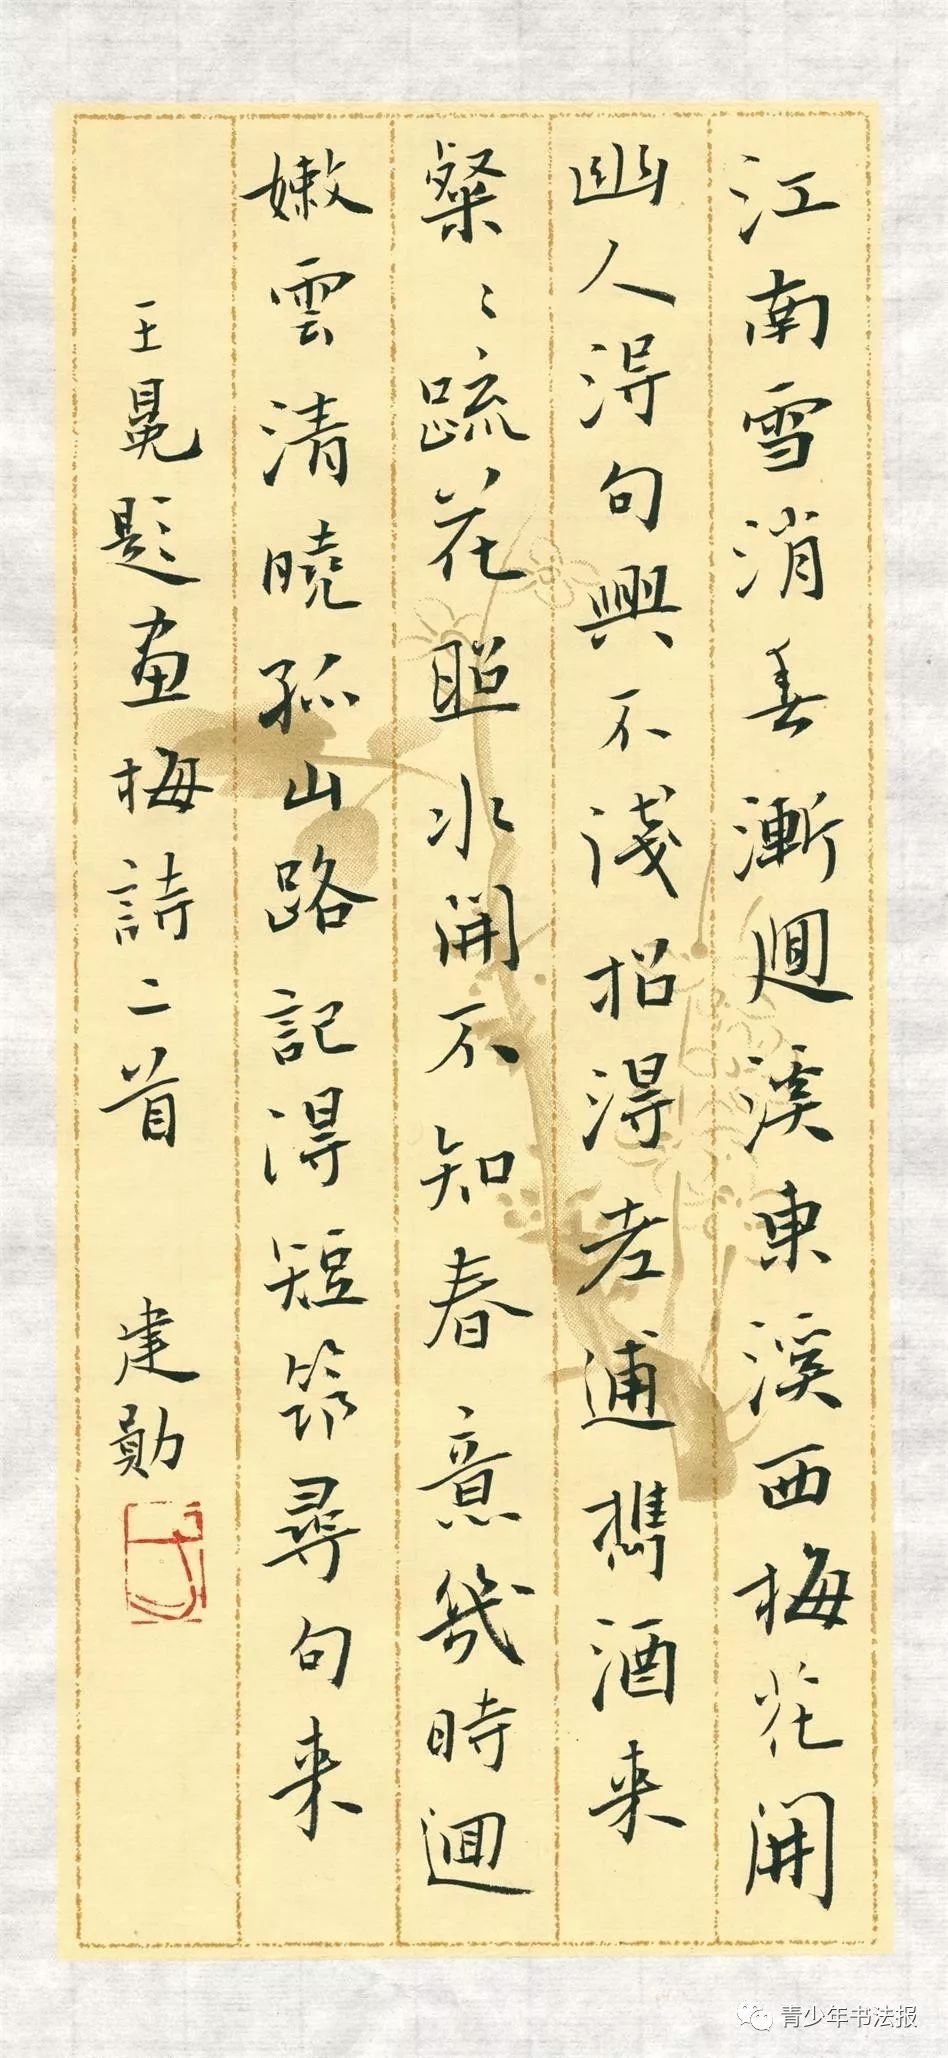 江南雪消春漸迴溪東溪西梅花開
幽人得句興不淺招得老逋攜酒来
粲〻疏花照水開不知春意幾時迴
嫩雲清曉孤山路記得短筇尋句来
王冕題畫梅詩二首 建勛
青少年书法报